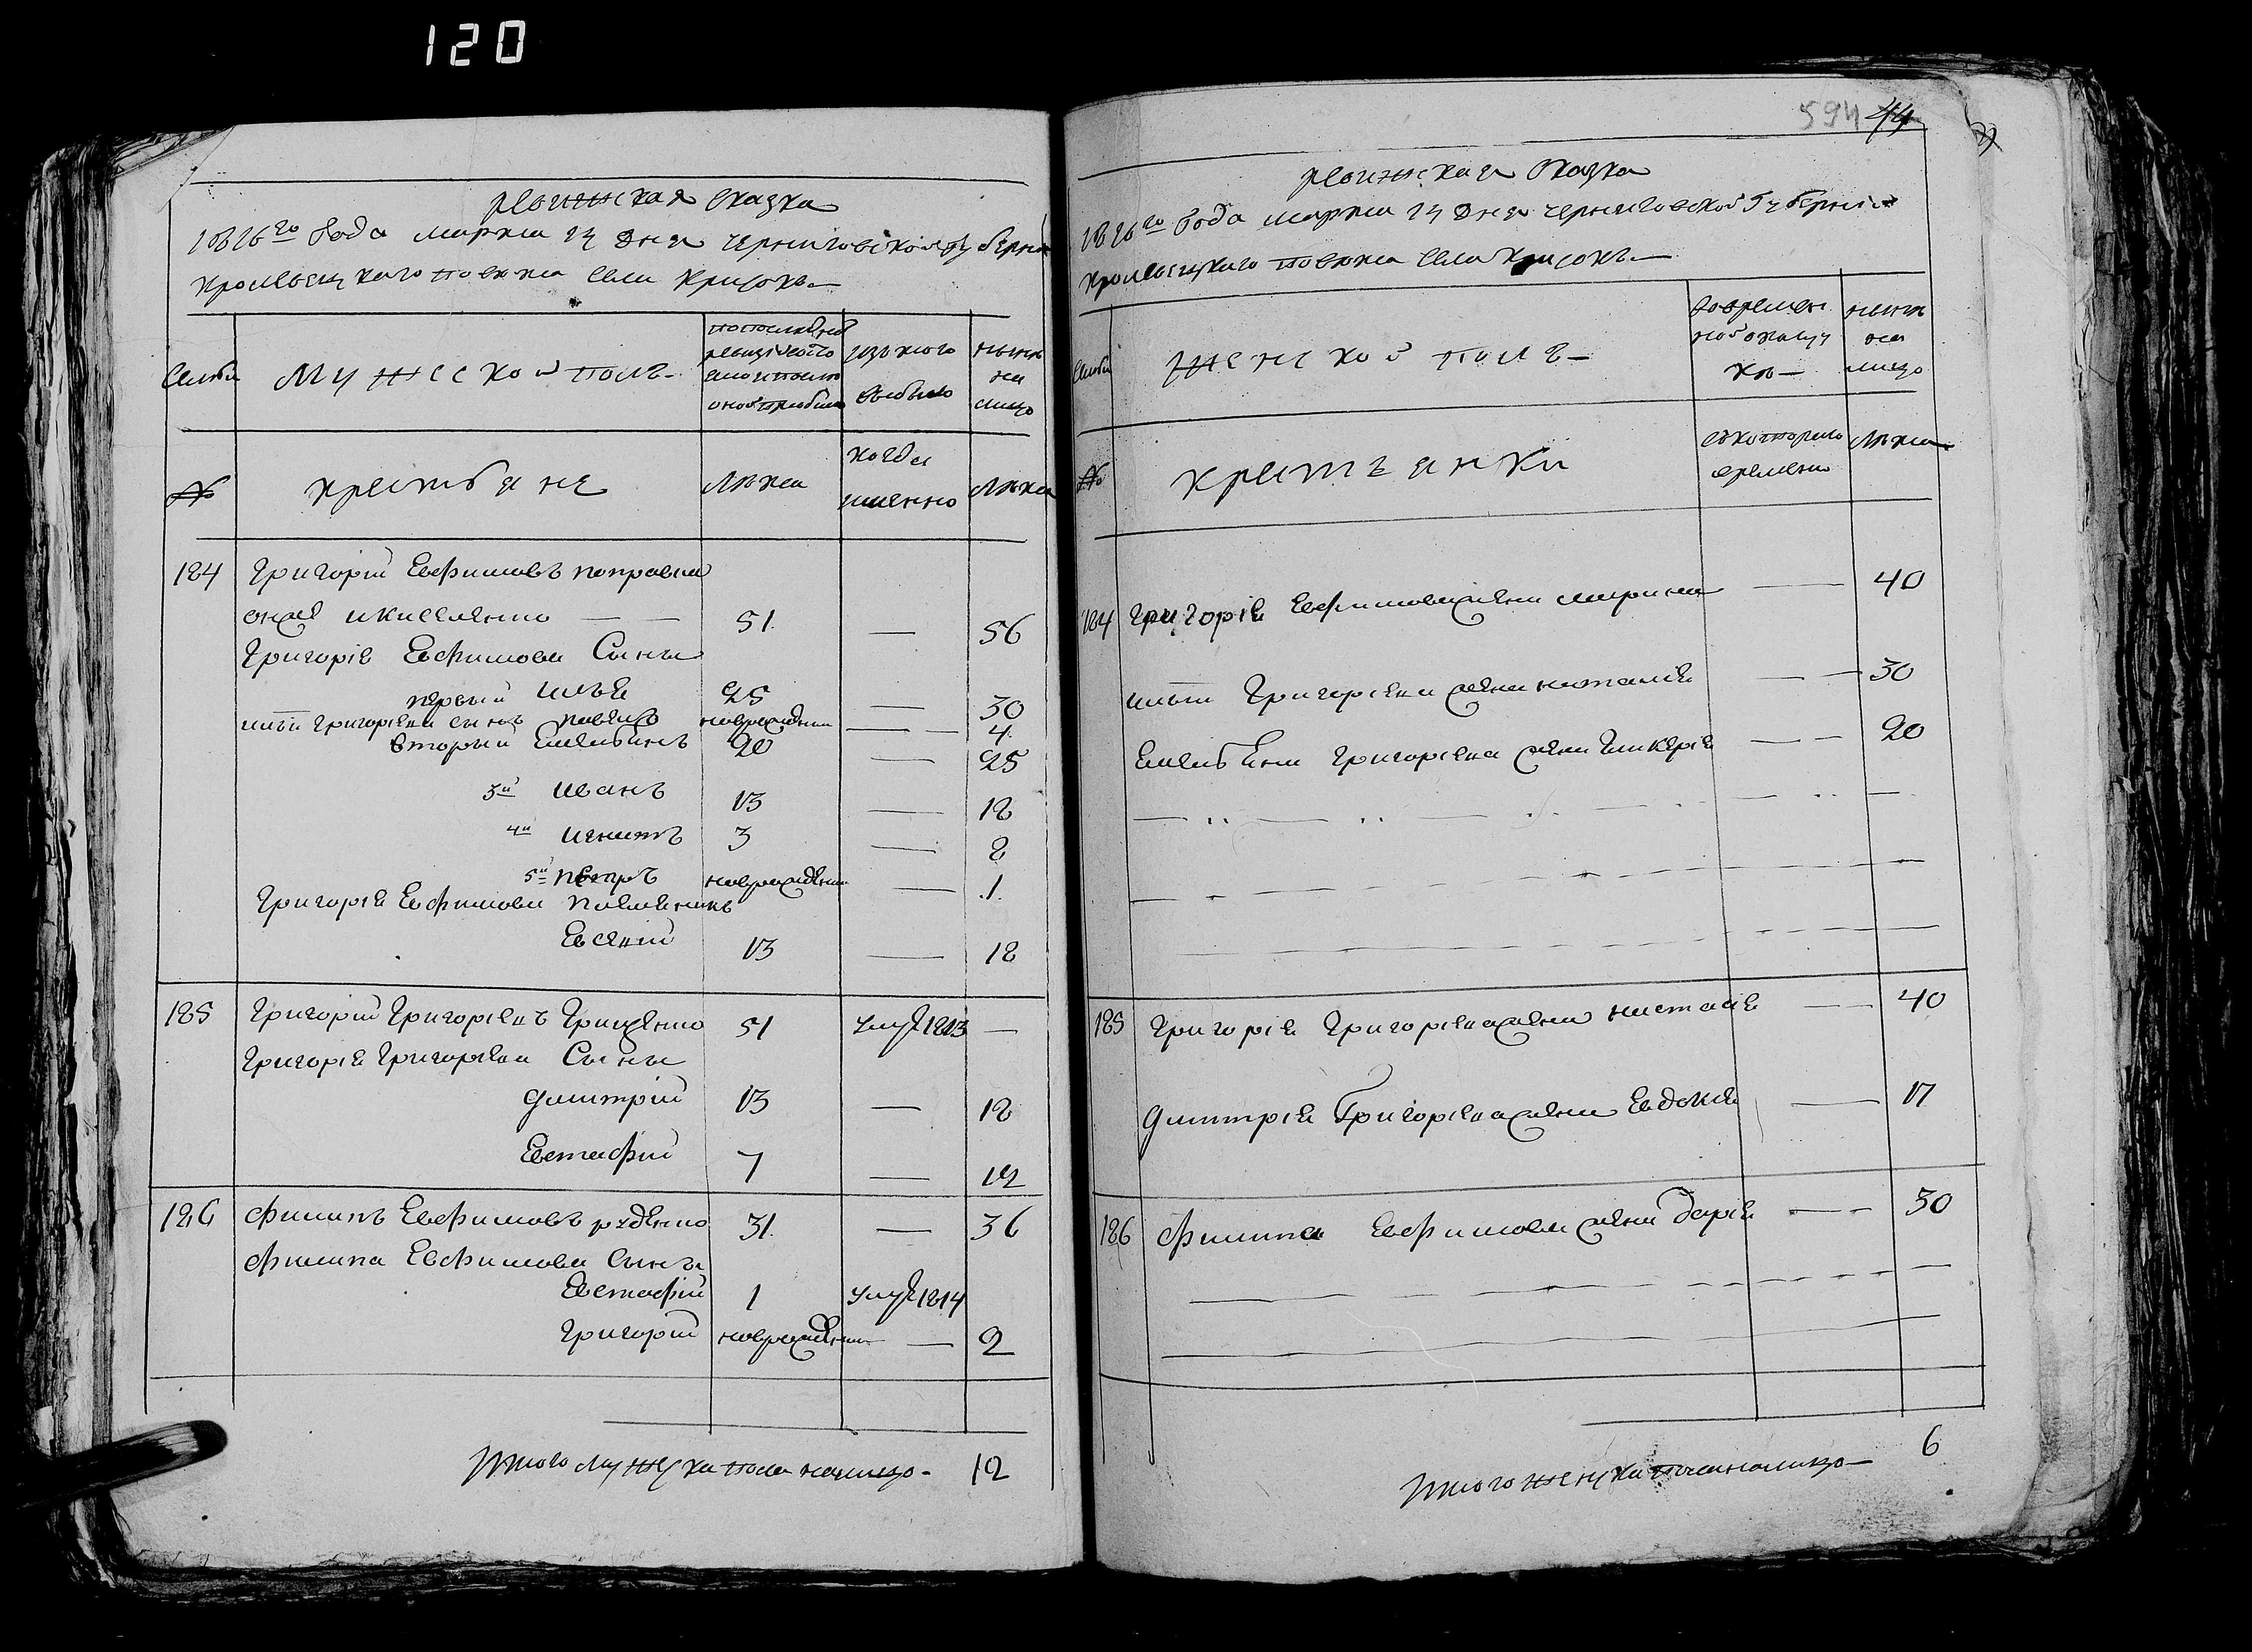 120
ревижская сказка
1816го года марта 24 дня черниговской губернии
кролевецкаго повета села Крисокъ
Семьи
Мужеской полъ
по последней ревизіи состояло и после оной прибыло
изъ того выбыло
ныне на лицо
№
крестьяне
Лета
когда именно
Лета
184 Григорій Евфимовъ поправка
онже Киселенко — — 51 — 56
Григорія Евфимова Сыны
первый Илья 25 — 30
Ильи Григоріева сынъ новорожденны — 4
вторый Емельянъ 20 — 25
3й Иванъ 13 — 18
4й Игнатъ 3 — 8
5й Петръ новорожденны — 1
Григорія Евфимова племенникъ
Евсевій 13 — 18
185 Григорій Григоріевъ Гриценко 51 умре 1813 —
Григорія Григоріева Сыны
Димитрій 13 — 18
Евстафій 7 — 12
186 Филипъ Евфимовъ руденко 31 — 36
Филипа Евфимова Сыны
Евстафій 1 умре 1814
Григорій новорожденны — 2
Итого мужеска пола налицо 12
594 44
ревижская сказка
1816го года марта 24 дня черниговской губерніи
кролевецкаго повета села Крисокъ
Семьи
Женской полъ
во временной отлучке
ныне на лицо
№
крестьянки
съ котораго времени
Лета
184 Григорія Евфимова жена марина — 40
Ильи Григоріева жена наталія — — 30
Емельяна Григоріева жена Гликерія — — 20
185 Григорія Григоріева жена настасія — 40
Димитрія Григоріева жена Евдокія — 17
186 Филипа Евфимова жена дарія — — 30
Итого женска пола налицо — 6